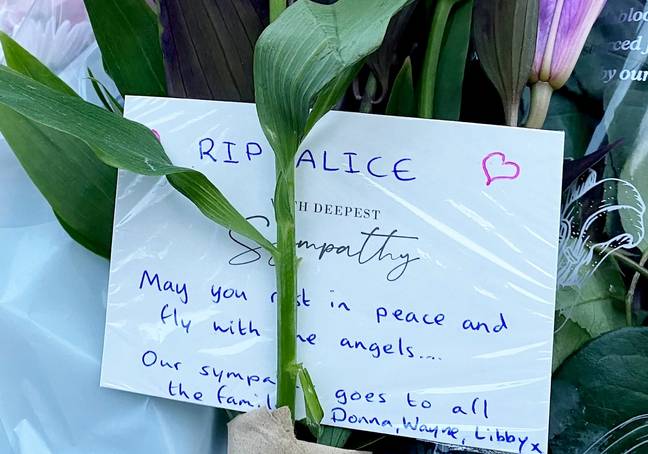 RIP ALICE
TH DEEPEST
S mpathy
May you r st in peace and
fly with he angels....
Our sympa goes to all
the famil Donna, Wayne, Libby x
bloo
rced f
by our